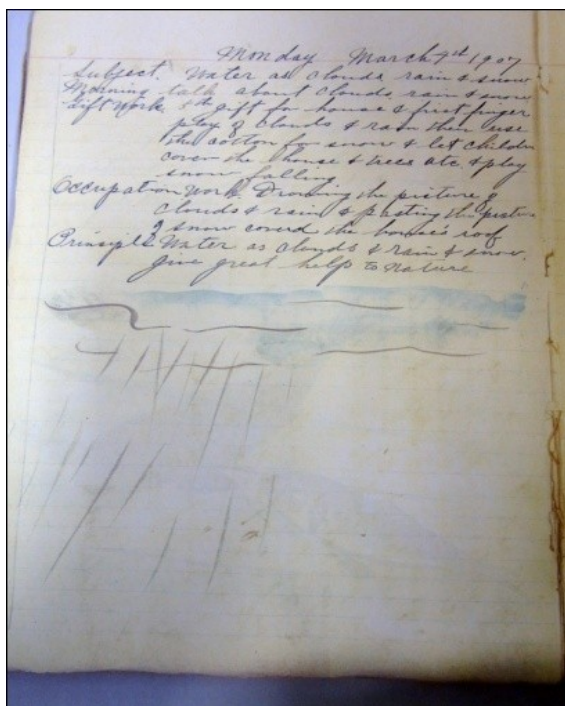 Monday March 4th 1907
Subject. Water as clouds rain & snow
Morning talk about clouds, rain & snow
Gift Work 4th gift for house & first finger
play of clouds & rain then use
the cotton for snow & let children
cover the house & trees etc & play
snow falling
Occupation Work. Drawing the picture of
clouds & rain & pasting the picture
of snow coverd the house's roof
Principle Water as clouds & rain & snow,
give great help to Nature